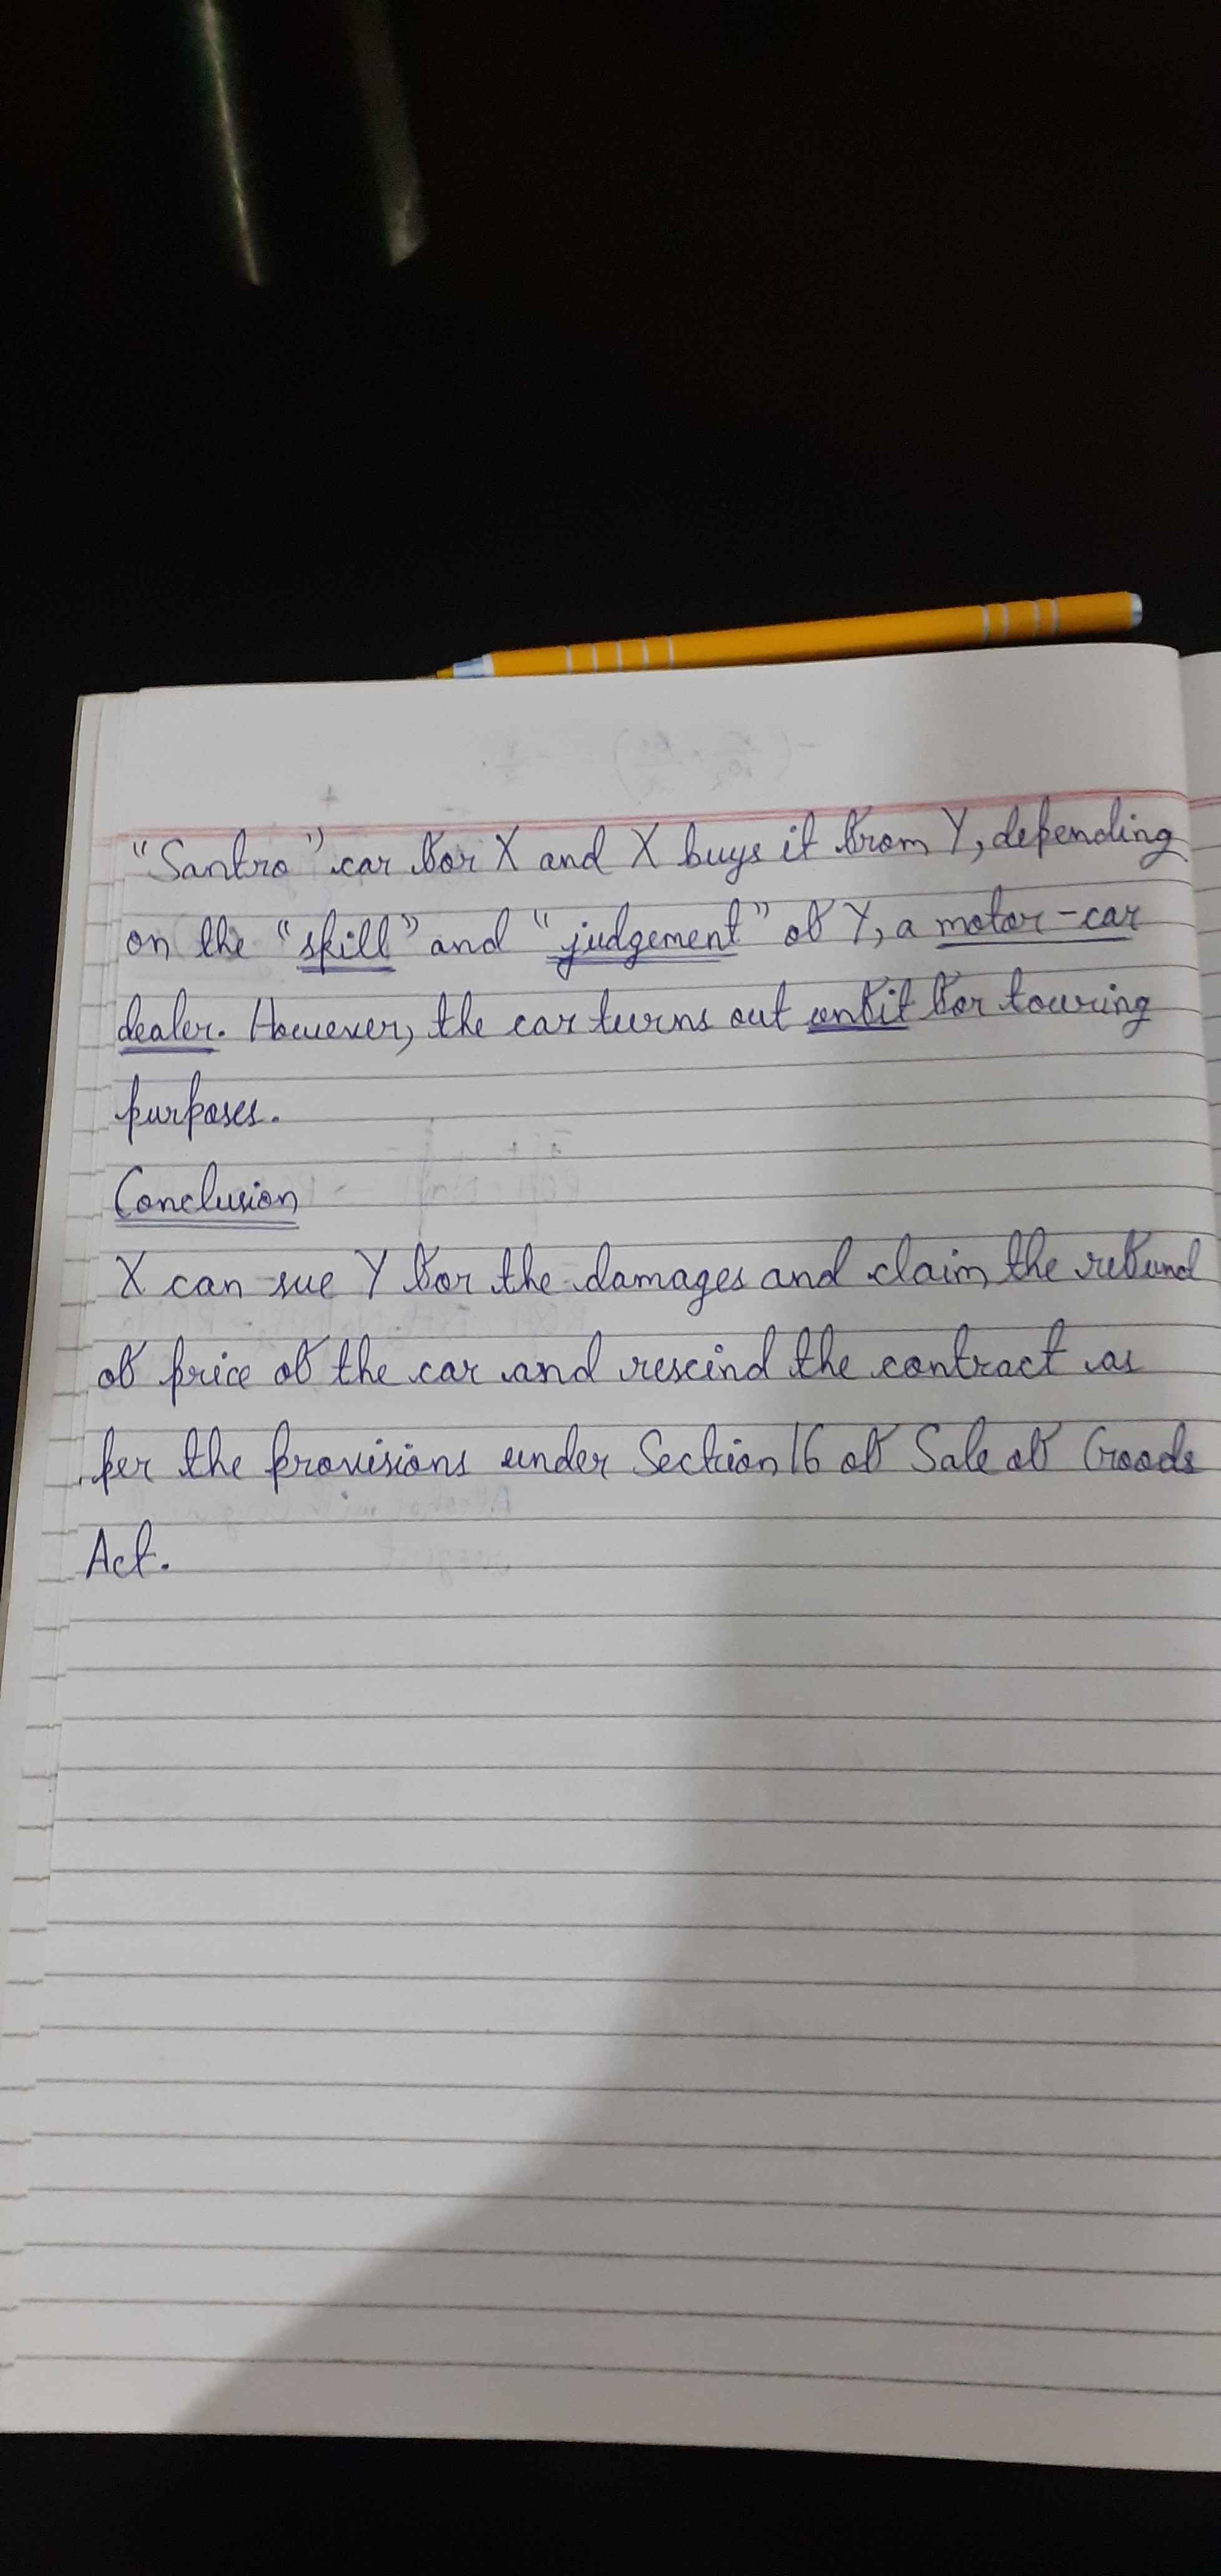 "Santro" car for X and X buys it from Y, depending
on the "skill" and "judgement" of Y, a motor-car
dealer. However, the car turns out unfit for touring
purposes.
Conclusion
X can sue Y for the damages and claim the refund
of price of the car and rescind the contract as
per the provisions under Section 16 of Sale of Goods
Act.